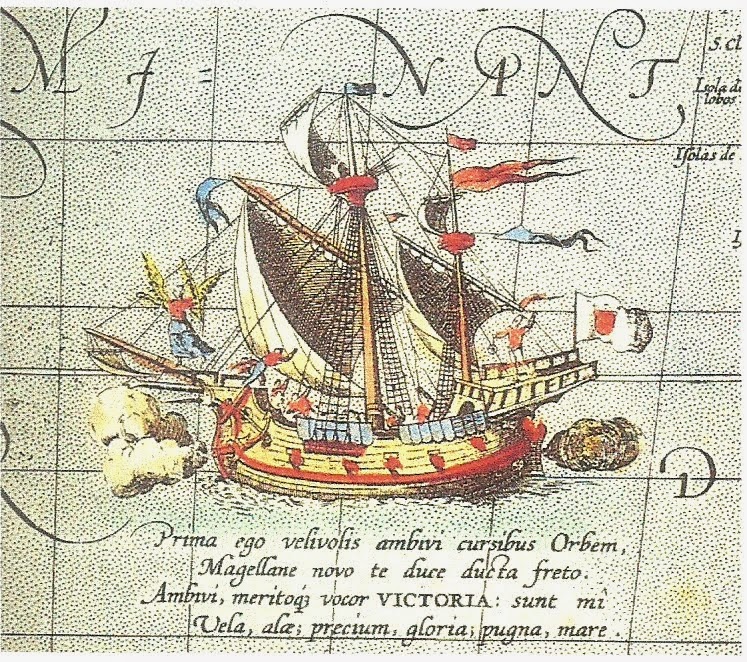 M J = N A N T
S. Cl
Isola de
lobos
Isolas de
Prima ego velivolis ambivi cursibus Orbem,
Magellane novo te duce ducta freto.
Ambivi, meritoq; vocor VICTORIA: sunt mî
Vela, alæ; precium, gloria; pugna, mare.
D